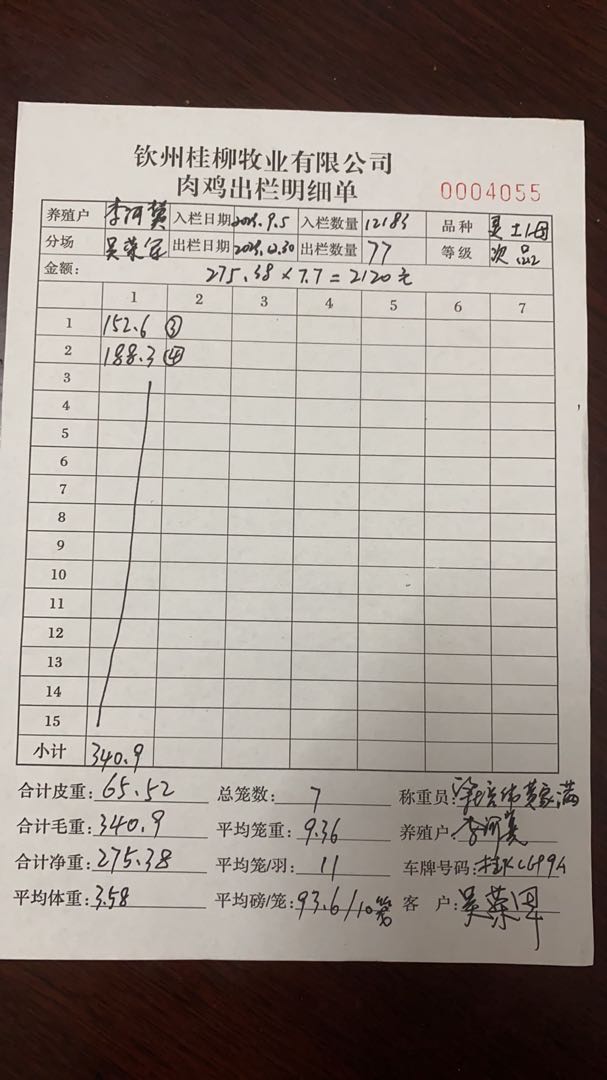 钦州桂柳牧业有限公司
肉鸡出栏明细单 0004055
养殖户 李河 入栏日期 9.5 入栏数量 12183 品种 土
分场 吴荣军 出栏日期 .30 出栏数量 77 等级 次品
金额: 275.38×7.7=2120元
1 2 3 4 5 6 7
1 152.6 ③
2 188.3 ④
3
4
5
6
7
8
9
10
11
12
13
14
15
小计 340.9
合计皮重: 65.52 总笼数: 7 称重员: 黄家满
合计毛重: 340.9 平均笼重: 9.36 养殖户: 李河
合计净重: 275.38 平均笼/羽: 11 车牌号码: 桂K
平均体重: 3.58 平均磅/笼: 93.6/10笼 客 户: 吴荣军